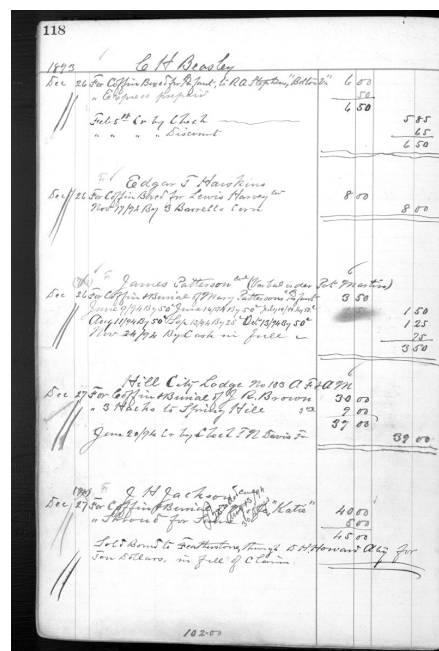 118
1893 C H Beasley
Dec 26 For Coffin Boxed for Infant, to R A Stephens, "Bolton" 6 00
" Express prepaid 50
6 50
Feb 5th Cr by Check 5 85
" " " " Discount 65
6 50
Edgar T Hawkins
Dec 26 For Coffin Boxed for Lewis Harvey 8 00
Nov 17/94 By 3 Barrells Corn 8 00
James Patterson (Verbal order
Dec 26 For Coffin & Burial of Mary Patterson's Infant 3 50
June 9/94 By 50 June 16/94 By 50 1 50
Aug 11/94 By 50 Sep 15/94 By 25 Oct 13/94 By 50 1 25
Nov 24/94 By Cash in full 75
3 50
Hill City Lodge No 183 A F & A M
Dec 27 For Coffin & Burial of J R Brown 30 00
" 3 Hacks to Spring Hill 9 00
39 00
June 20/94 Cr by Check T N Davis 39 00
J H Jackson
Dec 27 For Coffin & Burial "Katie" 40 00
" Shroud for Same 5 00
45 00
Sold Bond to Featherstone, through D H Howard Atty for
Ten Dollars, in full of Claim
102-00